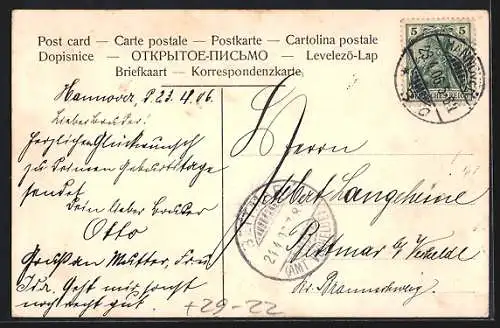 Post card — Carte postale — Postkarte — Cartolina postale
Dopisnice — ОТКРЫТОЕ-ПИСЬМО — Levelező-Lap
Briefkaart — Korrespondenzkarte
5 5
HANNOVER
Hannover, d. 23.4.06.
Lieber Bruder!
Herzlichen Glückwunsch
zu Deinem Geburtstage
sendet
Dein lieber Bruder
Otto
Gruß an Mutter,
Geht mir sonst
noch recht gut.
Herrn
Albert Langheine
Bettmar b/ Vechelde
Kr. Braunschweig
+29-22